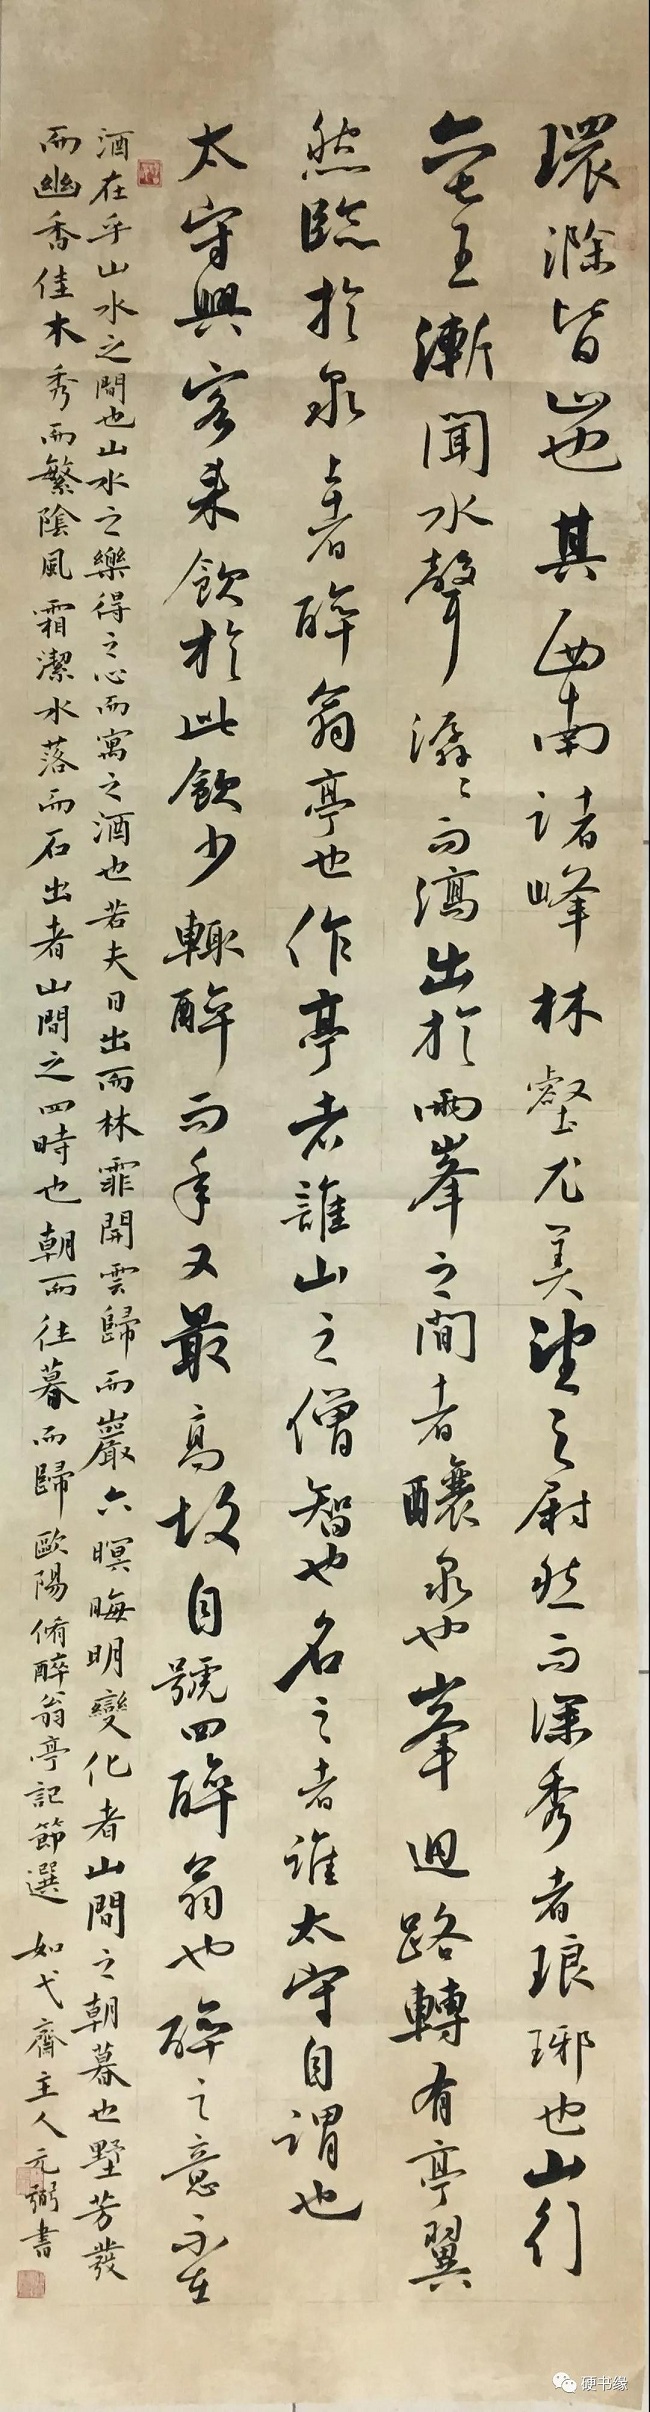 環滁皆山也其西南諸峰林壑尤美望之蔚然而深秀者琅琊也山行
六七里漸聞水聲潺々而瀉出於兩峯之間者釀泉也峯迴路轉有亭翼
然臨於泉上者醉翁亭也作亭者誰山之僧智也名之者誰太守自謂也
太守與客來飲於此飲少輒醉而年又最高故自號曰醉翁也醉之意不在
酒在乎山水之間也山水之樂得之心而寓之酒也若夫日出而林霏開雲歸而巖穴暝晦明變化者山間之朝暮也墅芳發
而幽香佳木秀而繁陰風霜潔水落而石出者山間之四時也朝而往暮而歸歐陽脩醉翁亭記節選 如弋齋主人元弼書
硬书缘